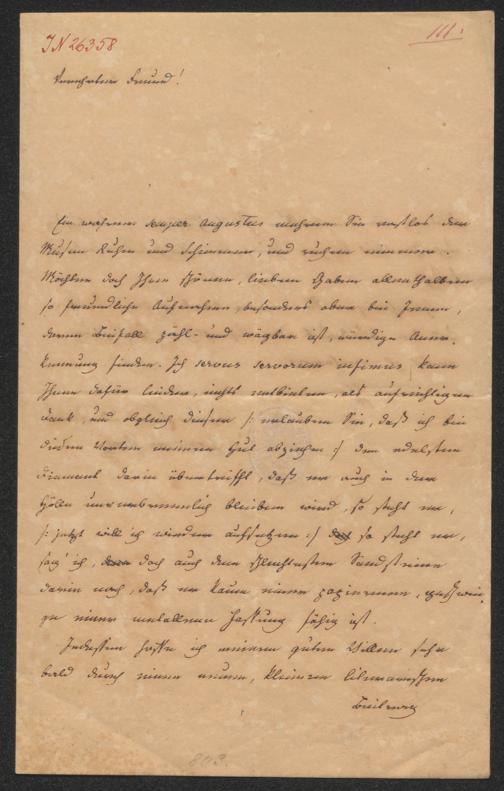 IN 26358
III.
Verehrter Freund!
Ein wahrer semper Augustus mehren Sie rastlos der
Musen Ruhm und Schimmer, und ruhen nimmer.
Möchten doch Ihre schönen, lieben Gaben allenthalben
so freundliche Aufnahme, besonders aber bei Jenen,
deren Beifall zähl- und wägbar ist, würdige Aner-
kennung finden. Ich servus servorum infimus kann
Ihnen dafür leider, nichts entbieten, als aufrichtigen
Dank, und obgleich dieser /: erlauben Sie, daß ich bei
diesen Worten meinen Hut abziehe :/ den edelsten
Diamant darin übertrifft, daß er auch in der
Hölle unverbrennlich bleiben wird, so steht er,
/: jetzt will ich wieder aufsetzen :/ so steht er,
sag' ich, doch auch dem schlechtesten Sandsteine
darin nach, daß er kaum einer papiernen, geschwei-
ge einer metallenen Fassung fähig ist.
Indessen hoffe ich meinen guten Willen sehr
bald durch einen neuen, kleinen literarischen
Beitrag
803.